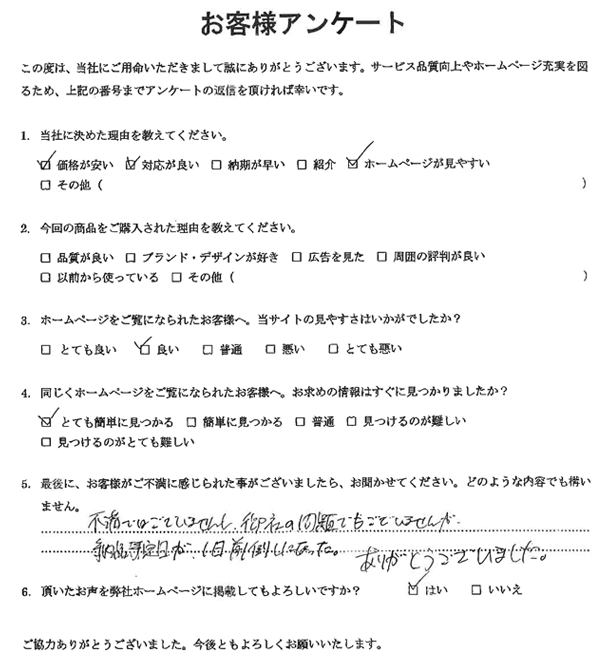 お客様アンケート
この度は、当社にご用命いただきまして誠にありがとうございます。サービス品質向上やホームページ充実を図
るため、上記の番号までアンケートの返信を頂ければ幸いです。
1. 当社に決めた理由を教えてください。
☑ 価格が安い ☑ 対応が良い □ 納期が早い □ 紹介 ☑ ホームページが見やすい
□ その他 ( )
2. 今回の商品をご購入された理由を教えてください。
□ 品質が良い □ ブランド・デザインが好き □ 広告を見た □ 周囲の評判が良い
□ 以前から使っている □ その他 ( )
3. ホームページをご覧になられたお客様へ。当サイトの見やすさはいかがでしたか？
□ とても良い ☑ 良い □ 普通 □ 悪い □ とても悪い
4. 同じくホームページをご覧になられたお客様へ。お求めの情報はすぐに見つかりましたか？
☑ とても簡単に見つかる □ 簡単に見つかる □ 普通 □ 見つけるのが難しい
□ 見つけるのがとても難しい
5. 最後に、お客様がご不満に感じられた事がございましたら、お聞かせてください。どのような内容でも構い
ません。
不満ではございませんし、御社の問題でもございませんが、
納品予定日が、1日前倒しになった。ありがとうございました。
6. 頂いたお声を弊社ホームページに掲載してもよろしいですか？ ☑ はい □ いいえ
ご協力ありがとうございました。今後ともよろしくお願いいたします。